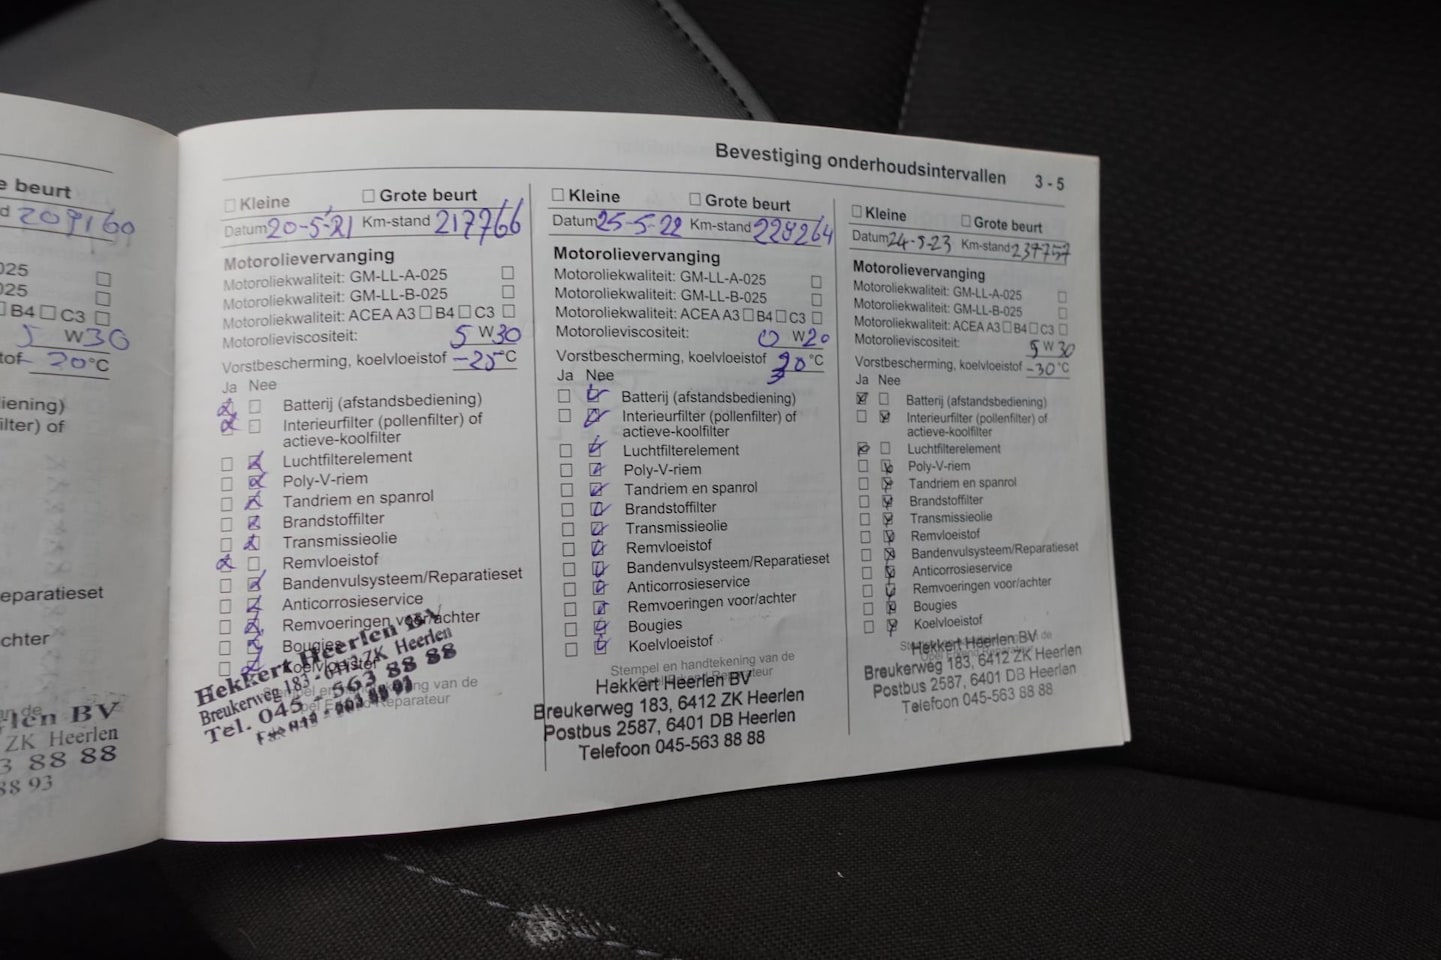 e beurt
d 209160
025
025
B4 C3
5 W30
tof -20°C
iening)
ilter) of
eparatieset
chter
an de
rlen BV
ZK Heerlen
3 88 88
88 93
Bevestiging onderhoudsintervallen 3 - 5
Kleine Grote beurt
Datum 20-5-21 Km-stand 217766
Motorolievervanging
Motoroliekwaliteit: GM-LL-A-025
Motoroliekwaliteit: GM-LL-B-025
Motoroliekwaliteit: ACEA A3 B4 C3
Motorolieviscositeit: 5 W30
Vorstbescherming, koelvloeistof -25°C
Ja Nee
Batterij (afstandsbediening)
Interieurfilter (pollenfilter) of
actieve-koolfilter
Luchtfilterelement
Poly-V-riem
Tandriem en spanrol
Brandstoffilter
Transmissieolie
Remvloeistof
Bandenvulsysteem/Reparatieset
Anticorrosieservice
Remvoeringen voor/achter
Bougies
Koelvloeistof
Hekkert Heerlen BV
Breukerweg 183 - 6412 ZK Heerlen
Tel. 045 - 563 88 88
Kleine Grote beurt
Datum 25-5-22 Km-stand 228264
Motorolievervanging
Motoroliekwaliteit: GM-LL-A-025
Motoroliekwaliteit: GM-LL-B-025
Motoroliekwaliteit: ACEA A3 B4 C3
Motorolieviscositeit: 0 W20
Vorstbescherming, koelvloeistof 30°C
Ja Nee
Batterij (afstandsbediening)
Interieurfilter (pollenfilter) of
actieve-koolfilter
Luchtfilterelement
Poly-V-riem
Tandriem en spanrol
Brandstoffilter
Transmissieolie
Remvloeistof
Bandenvulsysteem/Reparatieset
Anticorrosieservice
Remvoeringen voor/achter
Bougies
Koelvloeistof
Stempel en handtekening van de
Hekkert Heerlen BV
Breukerweg 183, 6412 ZK Heerlen
Postbus 2587, 6401 DB Heerlen
Telefoon 045-563 88 88
Kleine Grote beurt
Datum 24-5-23 Km-stand 237757
Motorolievervanging
Motoroliekwaliteit: GM-LL-A-025
Motoroliekwaliteit: GM-LL-B-025
Motoroliekwaliteit: ACEA A3 B4 C3
Motorolieviscositeit: 5 W 30
Vorstbescherming, koelvloeistof -30°C
Ja Nee
Batterij (afstandsbediening)
Interieurfilter (pollenfilter) of
actieve-koolfilter
Luchtfilterelement
Poly-V-riem
Tandriem en spanrol
Brandstoffilter
Transmissieolie
Remvloeistof
Bandenvulsysteem/Reparatieset
Anticorrosieservice
Remvoeringen voor/achter
Bougies
Koelvloeistof
Hekkert Heerlen BV
Breukerweg 183, 6412 ZK Heerlen
Postbus 2587, 6401 DB Heerlen
Telefoon 045-563 88 88